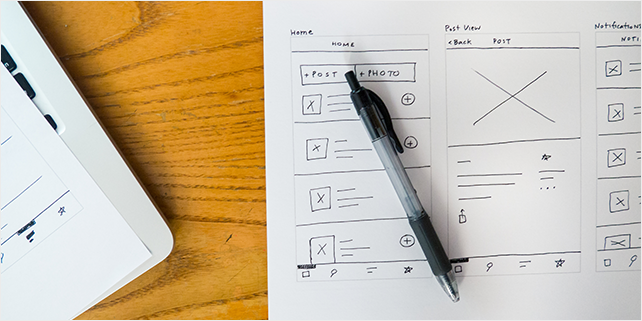 Home
HOME
+POST
+PHOTO
Post View
<Back POST
Notifications
NOTI